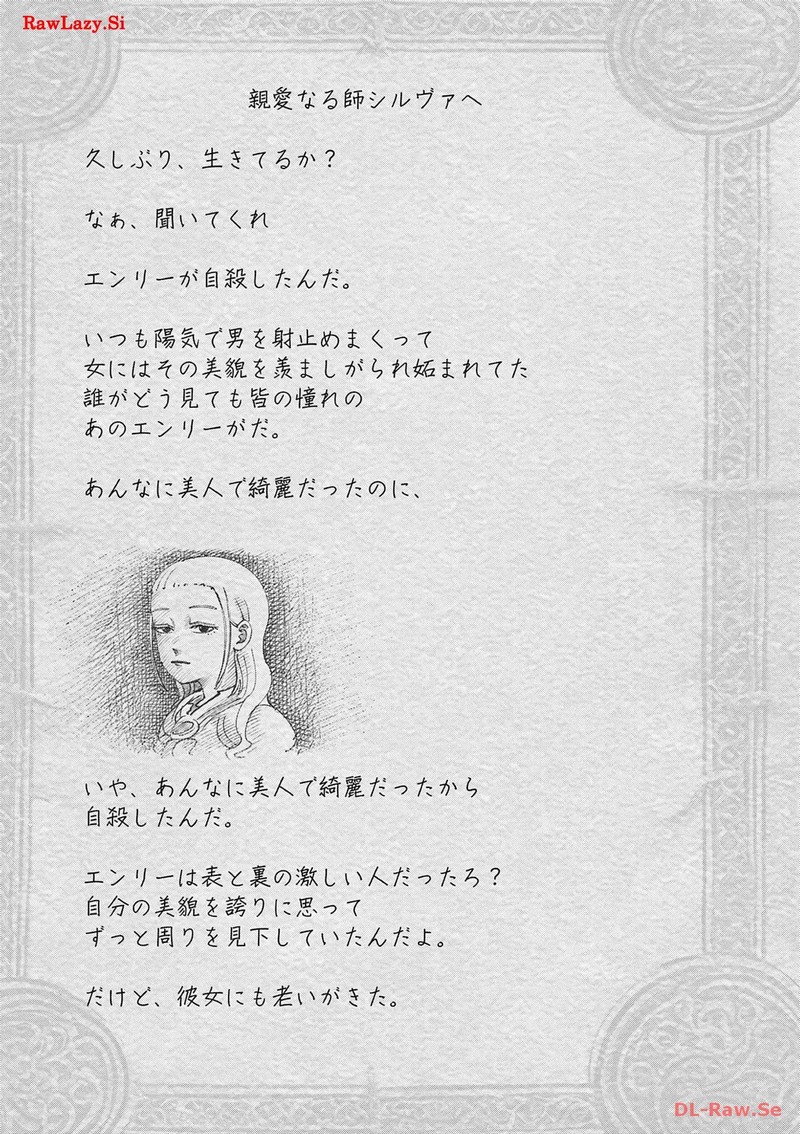 RawLazy.Si
親愛なる師シルヴァへ
久しぶり、生きてるか？
なぁ、聞いてくれ
エンリーが自殺したんだ。
いつも陽気で男を射止めまくって
女にはその美貌を羨ましがられ妬まれてた
誰がどう見ても皆の憧れの
あのエンリーがだ。
あんなに美人で綺麗だったのに、
いや、あんなに美人で綺麗だったから
自殺したんだ。
エンリーは表と裏の激しい人だったろ？
自分の美貌を誇りに思って
ずっと周りを見下していたんだよ。
だけど、彼女にも老いがきた。
DL-Raw.Se